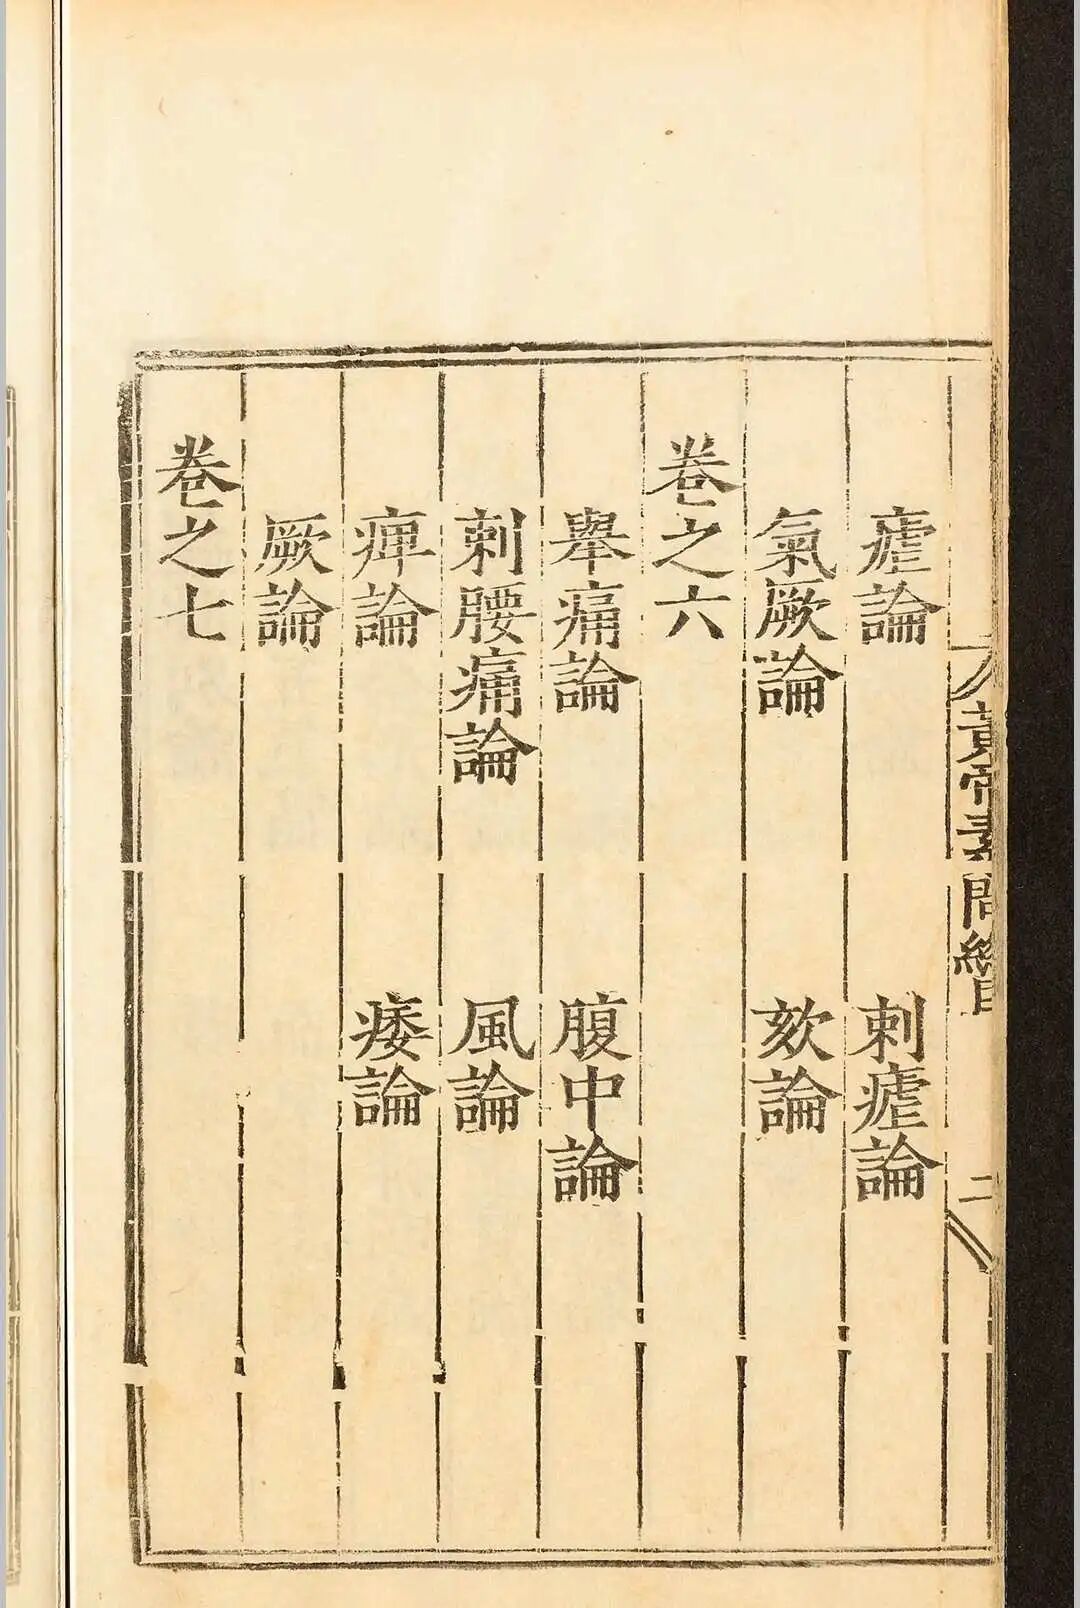 黃帝素問總目 二
瘧論 刺瘧論
氣厥論 欬論
卷之六
舉痛論 腹中論
刺腰痛論 風論
痺論 痿論
厥論
卷之七